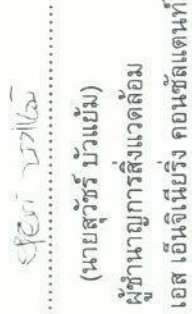 (นายสุวัชร์ บัวแย้ม)
ผู้ชำนาญการสิ่งแวดล้อม
เอส เอ็นจิเนียริ่ง คอนซัลแตนท์